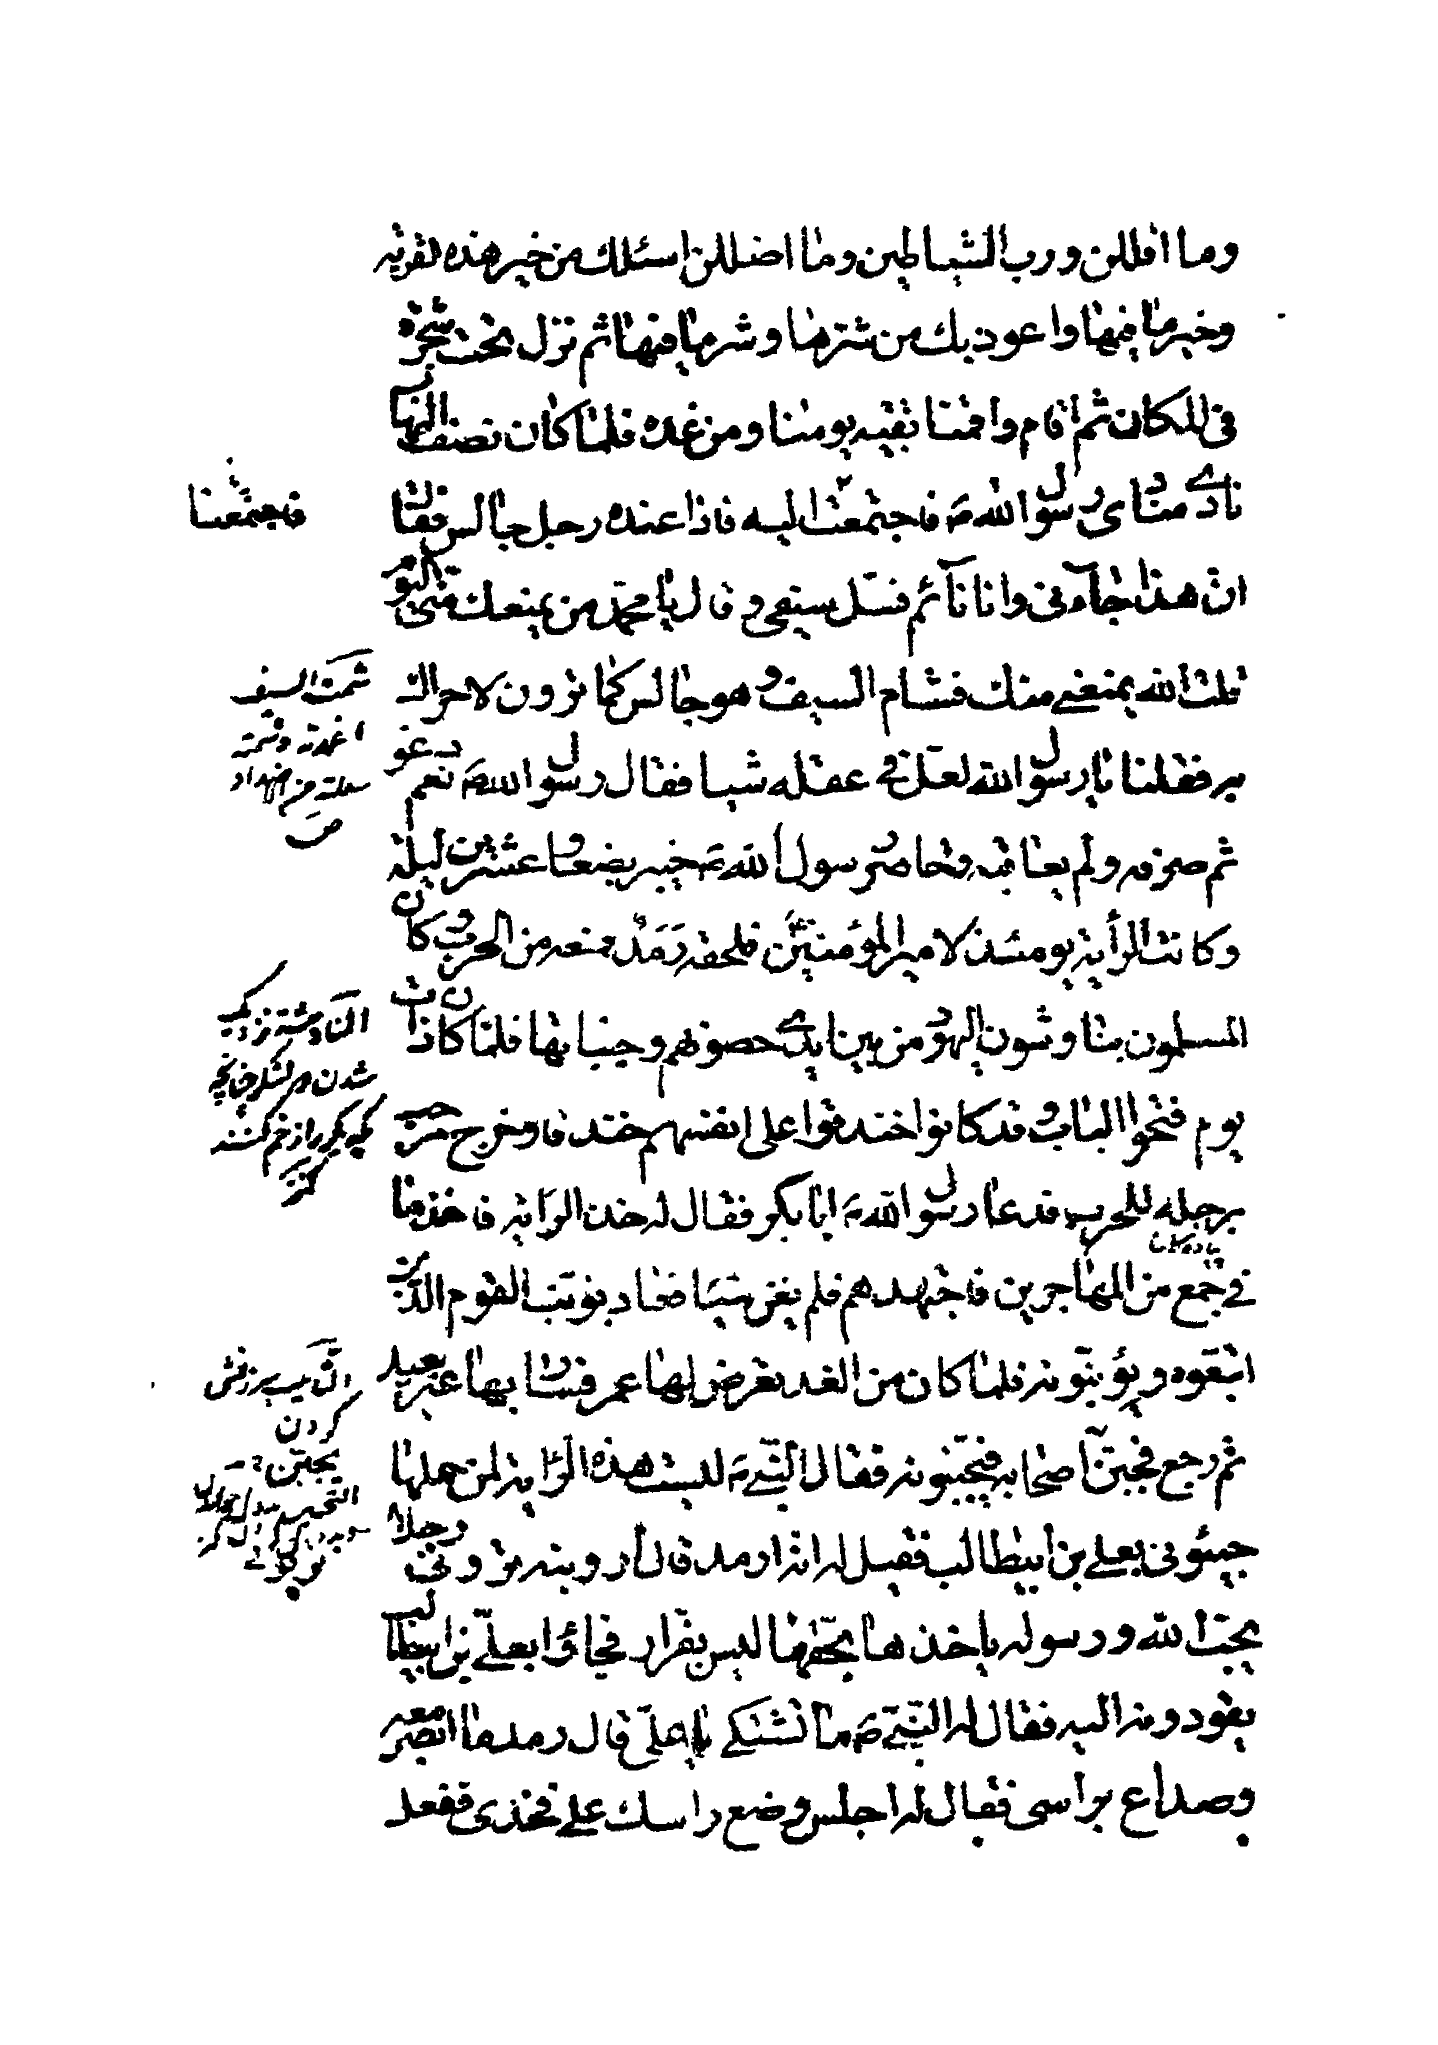 وما اقللن ورب الشياطين وما اضللن اسئلك من خير هذه القرية
وخير ما فيها واعوذ بك من شرها وشر ما فيها ثم نزل تحت شجرة
في المكان ثم اقام واقمنا بقية يومنا ومن غده فلما كان نصف النهار
نادى منادي رسول الله ص فاجتمعنا اليه فاذا عنده رجل جالس فقال
ان هذا جاءني وانا نائم فسل سيفي وقال يا محمد من يمنعك منى اليوم
قلت الله يمنعني منك فشام السيف وهو جالس كما ترون لا حراك
به فقلنا يا رسول الله لعل في عقله شيا فقال رسول الله ص نعم دعوه
ثم صرفه ولم يعاقبه وحاصر رسول الله ص خيبر بضعا وعشرين ليلة
وكانت الراية يومئذ لامير المؤمنين ع فلحقه رمد فمنعه من الحرب وكان
المسلمون يناوشون اليهود من بين ايدى حصونهم وجنباتها فلما كان ذات
يوم فتحوا الباب وقد كانوا خندقوا على انفسهم خندقا وخرج مرحب
برجله للحرب فدعا رسول الله ص ابا بكر فقال له خذ الراية فاخذها
في جمع من المهاجرين فاجتهدهم فلم يغن شيا فعاد يونب القوم الذين
اتبعوه ويؤنبونه فلما كان من الغد تعرض لها عمر فسار بها غير بعيد
ثم رجع فجبن اصحابه فيجبنونه فقال النبي ص ليست هذه الراية لمن حملها
جيئوني بعلي بن ابيطالب فقيل له انه ارمد قال ارونيه تروني رجلا
يحب الله ورسوله ياخذها بحقها ليس بفرار فجاؤا بعلي بن ابيطالب
يقودونه اليه فقال له النبي ص ما تشتكي يا علي قال رمد ما ابصر معه
وصداع براسى فقال له اجلس وضع راسك على فخذى ففعل
فاجتمعنا
شمت السيف
اغمدته وشمته
سللته من الاضداد
ص
المناوشة نزديك
شدن در لشكر چنانچه
يكديگر را زخم كنند
كنز
التأنيب سرزنش
كردن